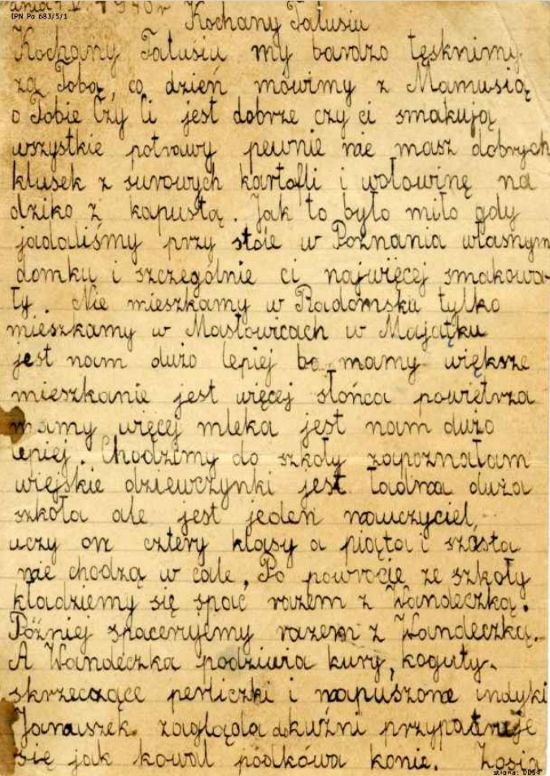 1940 r
IPN Po 683/5/1
Kochany Tatusiu
Kochany Tatusiu my bardzo tęsknimy
za Tobą, co dzień mówimy z Mamusią
o Tobie Czy Ci jest dobrze czy ci smakują
wszystkie potrawy pewnie nie masz dobrych
klusek z surowych kartofli i wołowinę na
dziko z kapustą. Jak to było miło gdy
jadaliśmy przy stole w Poznania własnym
domku i szczególnie ci najwięcej smakowa-
ły. Nie mieszkamy w Radomsku tylko
mieszkamy w Masłowicach w Majątku
jest nam dużo lepiej bo mamy większe
mieszkanie jest więcej słońca powietrza
mamy więcej mleka jest nam dużo
lepiej. Chodzimy do szkoły zapoznałam
wiejskie dziewczynki jest ładna duża
szkoła ale jest jeden nauczyciel,
uczy on cztery klasy a piąta i szósta
nie chodzą w cale. Po powrócie ze szkoły
kładziemy się spać razem z Wandeczką.
Później spacerujemy razem z Wandeczką.
A Wandeczka podziwia kury, koguty,
skrzeczące perliczki i napuszone indyki
Januszek zagląda kuźni przypatruje
się jak kowal podkówa konie. Zosia
strona: